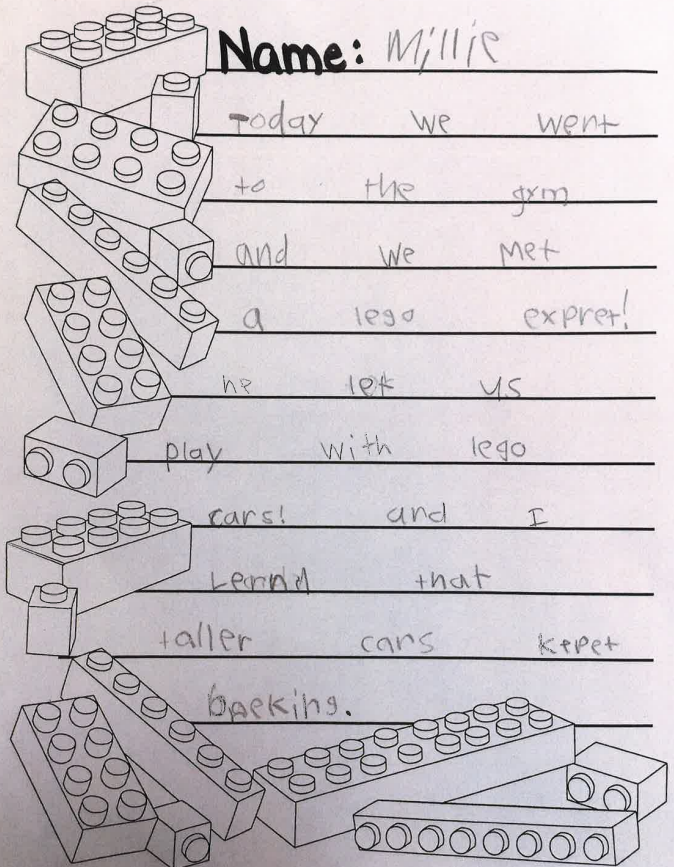 Name: Millie
Today we went
to the gym
and we met
a lego expret!
he let us
play with lego
cars! and I
Lernd that
taller cars kepet
bpeking.